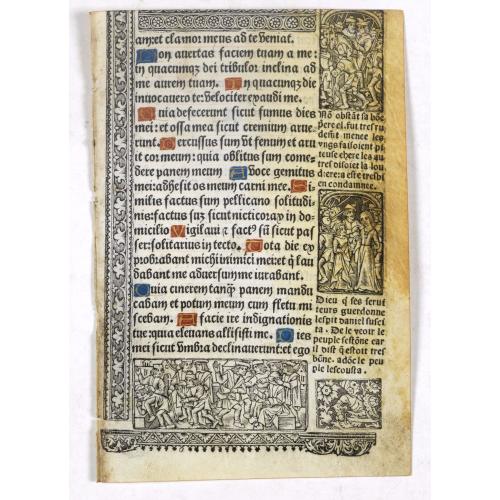 am: et clamor meus ad te veniat.
Non avertas faciem tuam a me:
in quacunqz dei tribulor inclina ad
me aurem tuam. In quacunqz die
invocavero te: velociter exaudi me.
Quia defecerunt sicut fumus dies
mei: et ossa mea sicut cremium arue
runt. Percussus sum vt fenum et aru
it cor meum: quia oblitus sum come-
dere panem meum A voce gemitus
mei: adhesit os meum carni mee. Si-
milis factus sum pellicano solitudi-
nis: factus suz sicut nicticorax in do-
micilio Vigilavi et factus sū sicut pas
ser: solitarius in tecto. Tota die ex
probrabant michi inimici mei: et q̄ lau
dabant me adversum me iurabant.
Quia cinerem tanqz panem mandu
cabam et potum meum cum fletu mi
scebam. A facie ire indignationis
tue: quia elevans allisisti me. Dies
mei sicut vmbra declinaverunt: et ego
Nō obstāt sa bōe
pere el. fut tres ru
demēt menee les
vngs faisoient pi
teuse chere les au
tres disoiēt la lou
diere: a este tresbiē
en condamnee.
Dieu q̄ ses serui
teurs guerdonne
lesprit daniel susci
ta. De le veoir le
peuple sestōne car
il dist q̄ estoit tres
bōne. adōc le peu
ple lescousta.